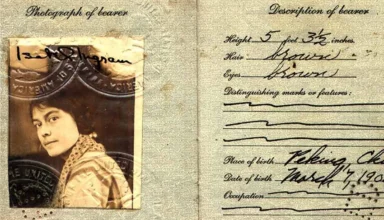 Photograph of bearer
Description of bearer
Height 5 feet 3½ inches.
Hair brown
Eyes brown
Distinguishing marks or features:
Place of birth Peking Ch
Date of birth March 7, 190
Occupation